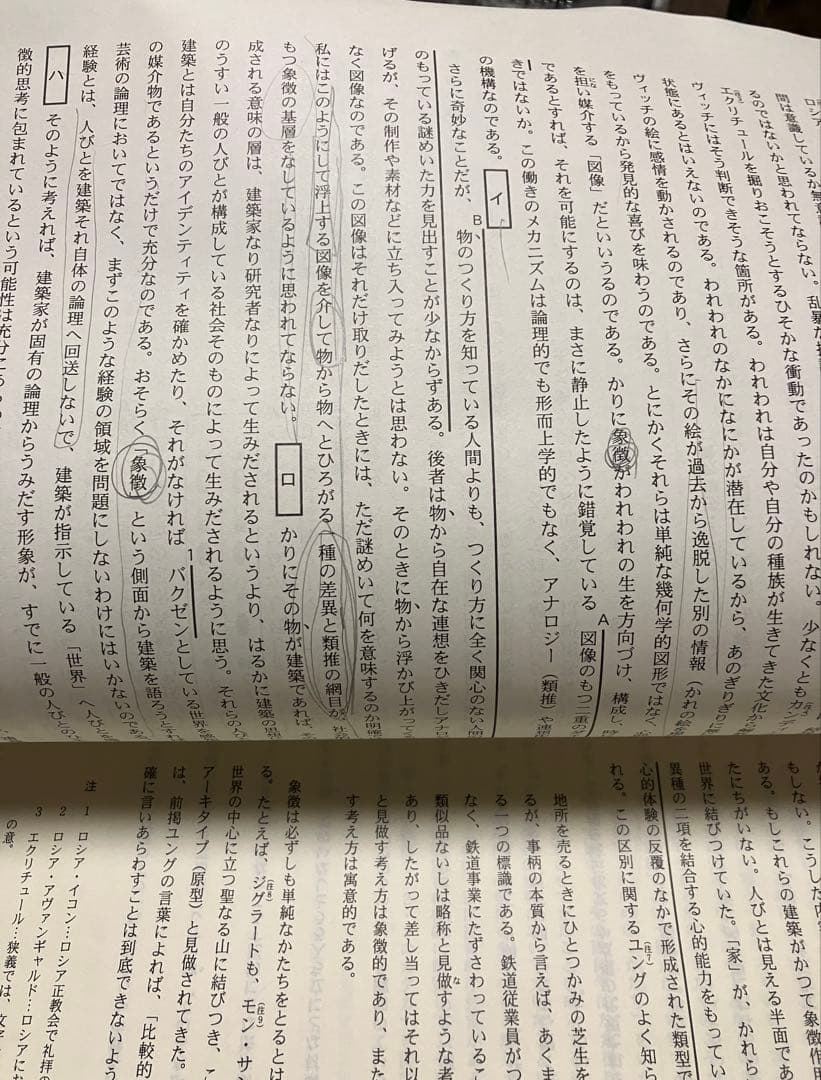 ロシア
問は意識しているか無意
るのではないかと思われてならない。乱暴な
エクリチュールを掘りおこそうとするひそかな衝動であったのかもしれない。少なくともカンディ
ヴィッチにはそう判断できそうな箇所がある。われわれは自分や自分の種族が生きてきた文化から
状態にあるとはいえないのである。われわれのなかになにかが潜在しているから、あのぎりぎりに
ヴィッチの絵に感情を動かされるのであり、さらにその絵が過去から逸脱した別の情報(かれの絵を
をもっているから発見的な喜びを味わうのである。とにかくそれらは単純な幾何学的図形ではなく、
を担い媒介する「図像」だといいうるのである。かりに象徴がわれわれの生を方向づけ、構成し、
であるとすれば、それを可能にするのは、まさに静止したように錯覚している図像のもつ二重の
きではないか。この働きのメカニズムは論理的でも形而上学的でもなく、アナロジー(類推)や連想
の機構なのである。 イ
さらに奇妙なことだが、物のつくり方を知っている人間よりも、つくり方に全く関心のない人間
のもっている謎めいた力を見出すことが少なからずある。後者は物から自在な連想をひきだしアナロ
げるが、その制作や素材などに立ち入ってみようとは思わない。そのときに物から浮かび上がってく
なく図像なのである。この図像はそれだけ取りだしたときには、ただ謎めいて何を意味するのか明確
私にはこのようにして浮上する図像を介して物から物へとひろがる一種の差異と類推の網目が、社会
もつ象徴の基層をなしているように思われてならない。 ロ かりにその物が建築であれば、そ
成される意味の層は、建築家なり研究者なりによって生みだされるというより、はるかに建築の思想
のうすい一般の人びとが構成している社会そのものによって生みだされるように思う。それらの人び
建築とは自分たちのアイデンティティを確かめたり、それがなければバクゼンとしている世界を
の媒介物であるというだけで充分なのである。おそらく「象徴」という側面から建築を語ろうとすれ
芸術の論理においてではなく、まずこのような経験の領域を問題にしないわけにはいかないのである
経験とは、人びとを建築それ自体の論理へ回送しないで、建築が指示している「世界」へ人びとを
ハ そのように考えれば、建築家が固有の論理からうみだす形象が、すでに一般の人びとの、
徴的思考に包まれているという可能性は充分にあ
もしない。こうした内
ある。もしこれらの建築がかつて象徴作用
たにちがいない。人びとは見える半面であ
世界に結びつけていた。「家」が、かれら
異種の二項を結合する心的能力をもってい
心的体験の反覆のなかで形成された類型で
れる。この区別に関するユングのよく知ら
地所を売るときにひとつかみの芝生を
るが、事柄の本質から言えば、あくま
る一つの標識である。鉄道従業員がつ
なく、鉄道事業にたずさわっているこ
類似品ないしは略称と見做すような考
あり、したがって差し当ってはそれ以
と見做す考え方は象徴的であり、また
す考え方は寓意的である。
象徴は必ずしも単純なかたちをとるとは
る。たとえば、ジグラートも、モン・サン
世界の中心に立つ聖なる山に結びつき、こ
アーキタイプ(原型)と見做されてきた。
は、前掲ユングの言葉によれば、「比較的
確に言いあらわすことは到底できないよう
注 1 ロシア・イコン…ロシア正教会で礼拝の
2 ロシア・アヴァンギャルド…ロシアにお
3 エクリチュール…狭義では、文字
の意。